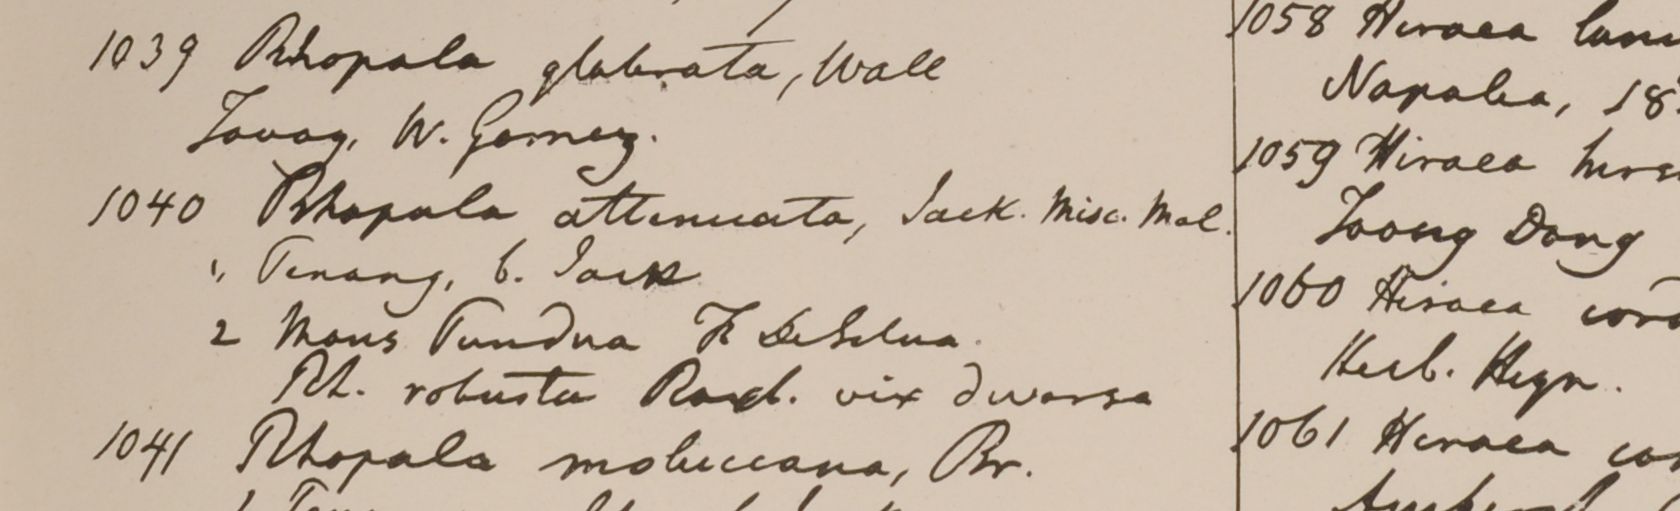 1039 Rhopala glabrata, Wall
Tavoy, W. Gomez.
1040 Rhopala attenuata, Jack. Misc. Mal.
1, Penang, G. Jack
2 Mons Pundua F. De Silva.
Rh. robusta Roxb. vix diversa
1041 Rhopala moluccana, Br.
1058 Hiraea
Napalia, 18
1059 Hiraea hirs
Toong Dong
1060 Hiraea cord
Herb. Heyn.
1061 Hiraea